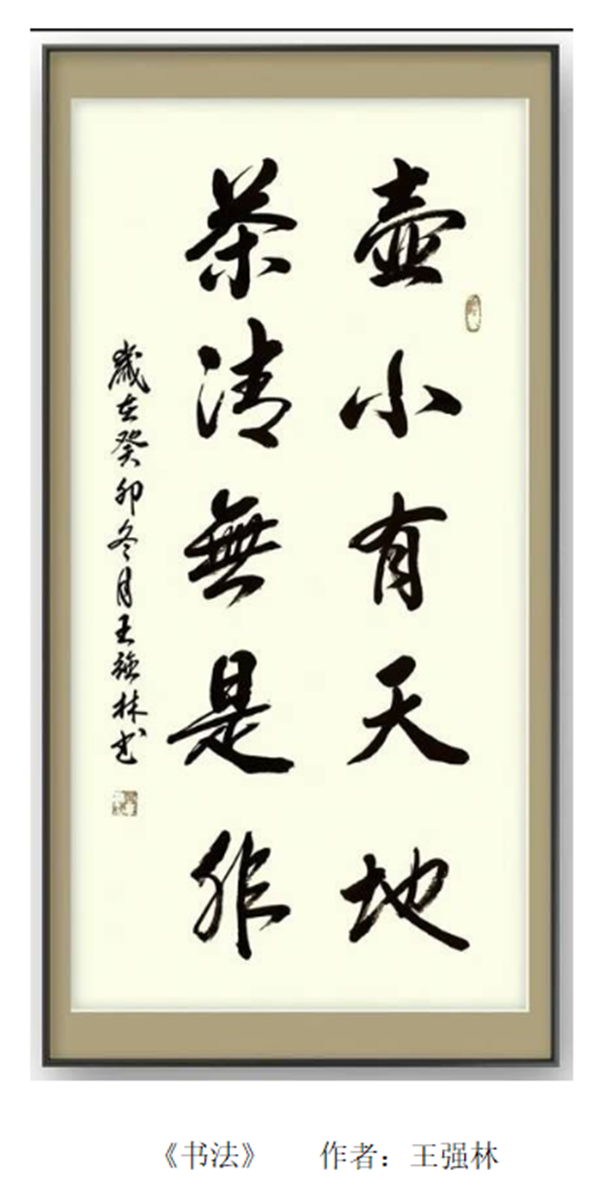 壺小有天地
茶清無是非
歲在癸卯冬月王強林书
《书法》 作者：王强林